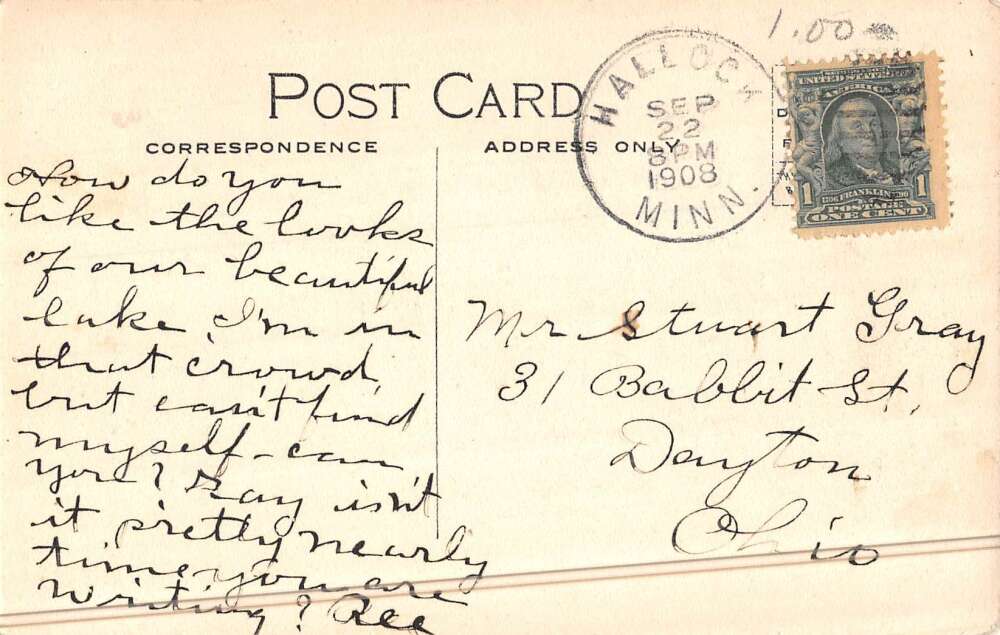 1.00
POST CARD
CORRESPONDENCE
ADDRESS ONLY
HALLOCK
SEP
22
8PM
1908
MINN.
UNITED STATES OF
AMERICA
1 FRANKLIN 1
POSTAGE
ONE CENT
How do you
like the looks
of our beautiful
lake. I'm in
that crowd,
but can't find
myself - can
you? Say isn't
it pretty nearly
time you are
writing? Ree
Mr Stuart Gray
31 Babbit St.
Dayton
Ohio